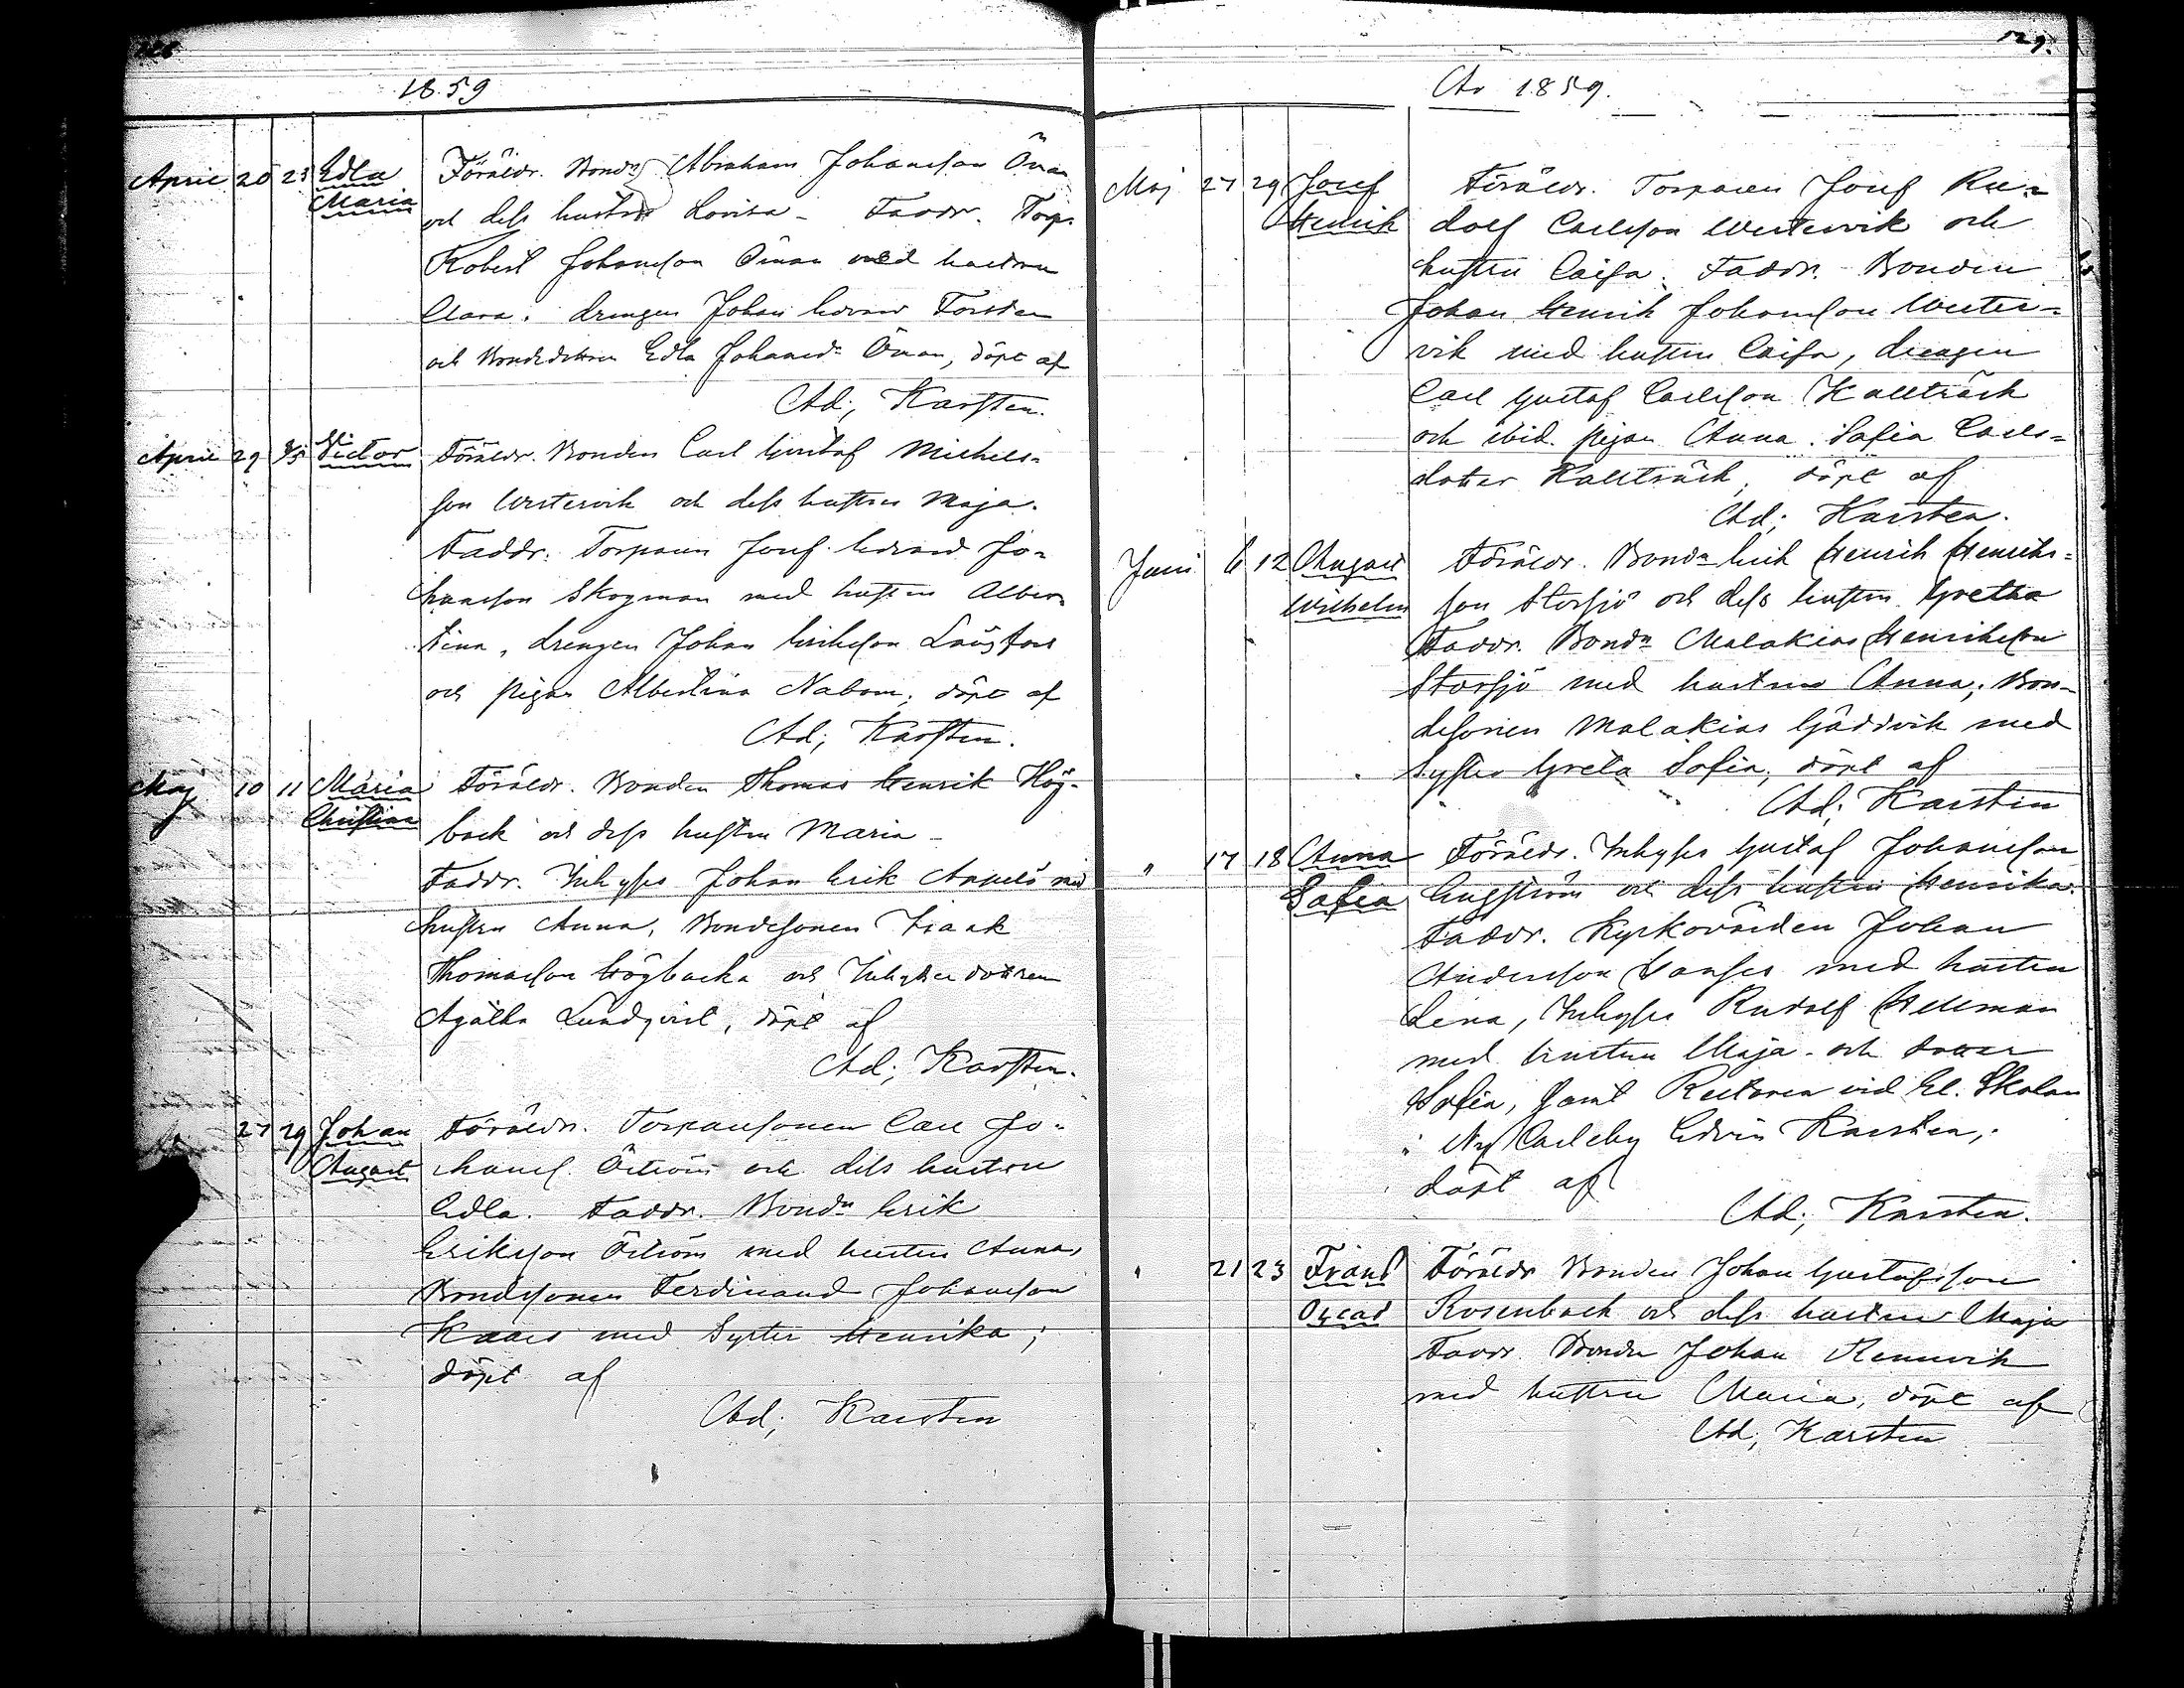 1859
April 20 23 Edla Maria
Föräldr. Bondn Abraham Johansson Öman
och dess hustru Lovisa - Faddr. Torp.
Robert Johansson Öman med hustrun
Clara. drengen Johan Edvard Forsten
och Bondedottren Edla Johansdr Öman, döpt af
Ad; Karsten.
April 29 1/5 Victor
Föräldr. Bonden Carl Gustaf Michels-
son Westervik och dess hustru Maja.
Faddr. Torparen Josef Edvard Jo-
hansson Skogman med hustru Alber-
tina, drengen Johan Eriksson
och pigan Albertina Nabom, döpt af
Ad; Karsten.
Maj 10 11 Maria Christina
Föräldr. Bonden Thomas Henrik Hög-
back och dess hustru Maria -
Faddr. Inhyses Johan Erik med
hustru Anna, Bondesonen Isaak
Thomasson Högbacka och Inhyses dottren
Agatha Lundqvist, döpt af
Ad; Karsten.
27 29 Johan August
Föräldr. Torparesonen Carl Jo-
hanss. Öström och dess hustru
Edla. Faddr. Bondn Erik
Eriksson Öström med hustru Anna,
Bondesonen Ferdinand Johansson
med Syster Henrika;
döpt af
Ad; Karsten
129.
År 1859.
Maj 27 29 Josef Henrik
Föräldr. Torparen Josef Ru-
dolf Carlsson Westervik och
hustru Caisa. Faddr. Bonden
Johan Henrik Johansson Wester-
vik med hustru Caisa, drengen
Carl Gustaf Carlsson Kallträsk
och ibid. pigan Anna Sofia Carls-
dotter Kallträsk, döpt af
Ad; Karsten.
Juni 6 12 August Wilhelm
Föräldr. Bondn Erik Henrik Henriks-
son Storsjö och dess hustru Gretha
Faddr. Bondn Malakias Henriksson
Storsjö med hustru Anna; Bon-
desonen Malakias Gäddvik med
Syster Greta Sofia, döpt af
Ad; Karsten
" 17 18 Anna Sofia
Föräldr. Inhyses Gustaf Johansson
Engström och dess hustru Henrika.
Faddr. Kyrkovärden Johan
Andersson med hustru
Lena, Inhyses Rudolf Hellman
med hustru Maja och dotter
Sofia, samt Rectoren vid El. Skolan
i Ny Carleby Edvin Karsten,
döpt af
Ad; Karsten.
" 21 23 Frans Oscar
Föräldr Bonden Johan Gustafsson
Rosenback och dess hustru Maja
Faddr. Bondn Johan
med hustru Maria, döpt af
Ad; Karsten